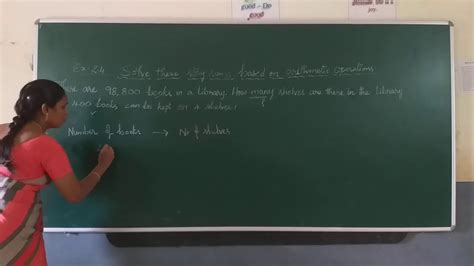 good - Do
good
Ex-2.4 Solve these story sums based on arithmetic operations
are 98,800 books in a library. How many shelves are there in the library
400 books can be kept on 4 shelves?
Number of books → No of shelves